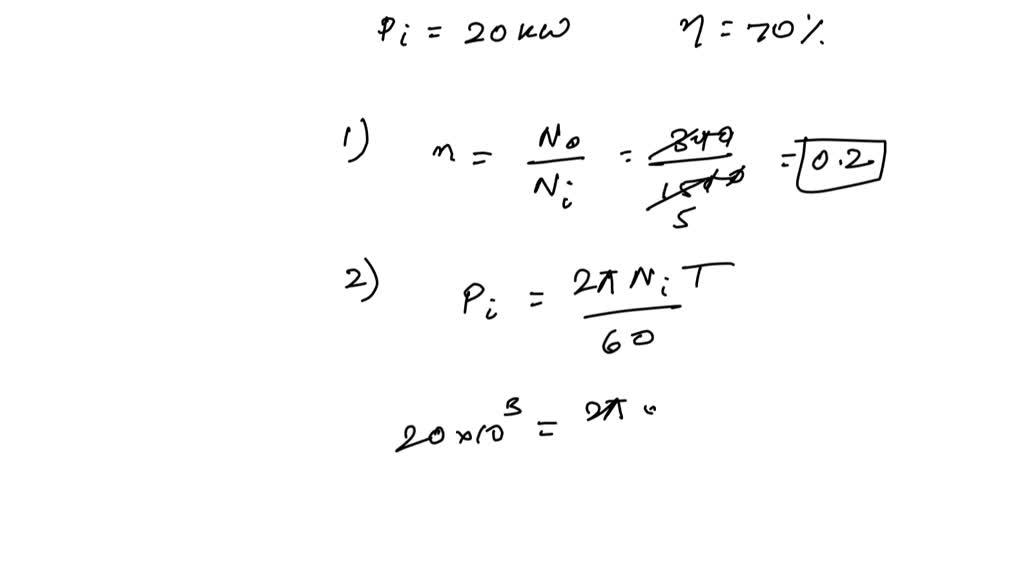 Pi = 20 kW η = 70%
1) n = No / Ni = / 5 = 0.2
2) Pi = 2π Ni T / 60
20×10³ = 2π